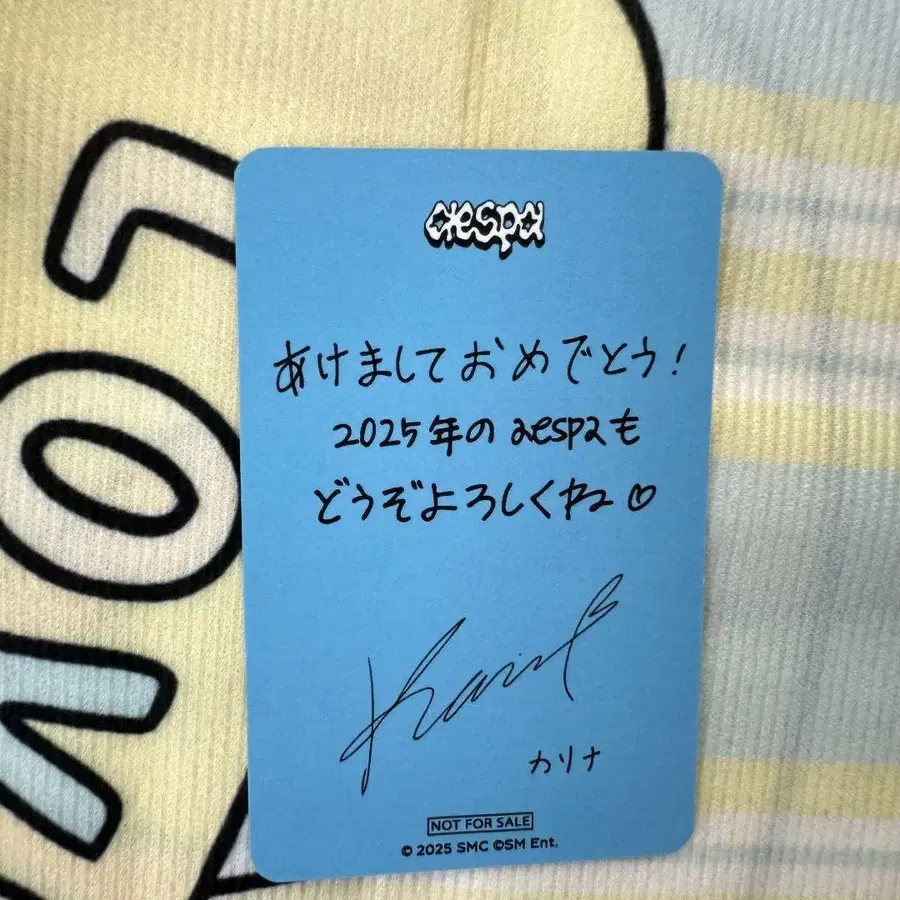 aespa
あけましておめでとう!
2025年のaespaも
どうぞよろしくね♡
Karina
カリナ
NOT FOR SALE
© 2025 SMC ©SM Ent.